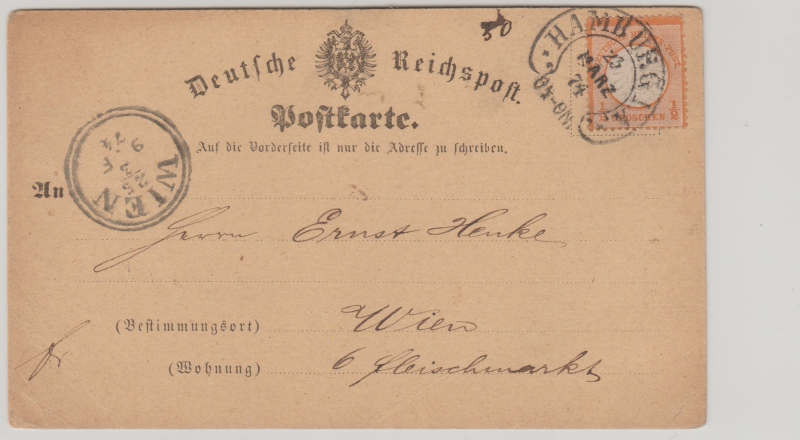 50
Deutsche Reichspost.
Postkarte.
Auf die Vorderseite ist nur die Adresse zu schreiben.
HAMBURG
23
MÄRZ
74
1/2 GROSCHEN 1/2
WIEN
25/3
F
9
74
An
Herrn Ernst Henke
(Bestimmungsort) Wien
(Wohnung) 6 Fleischmarkt
fr